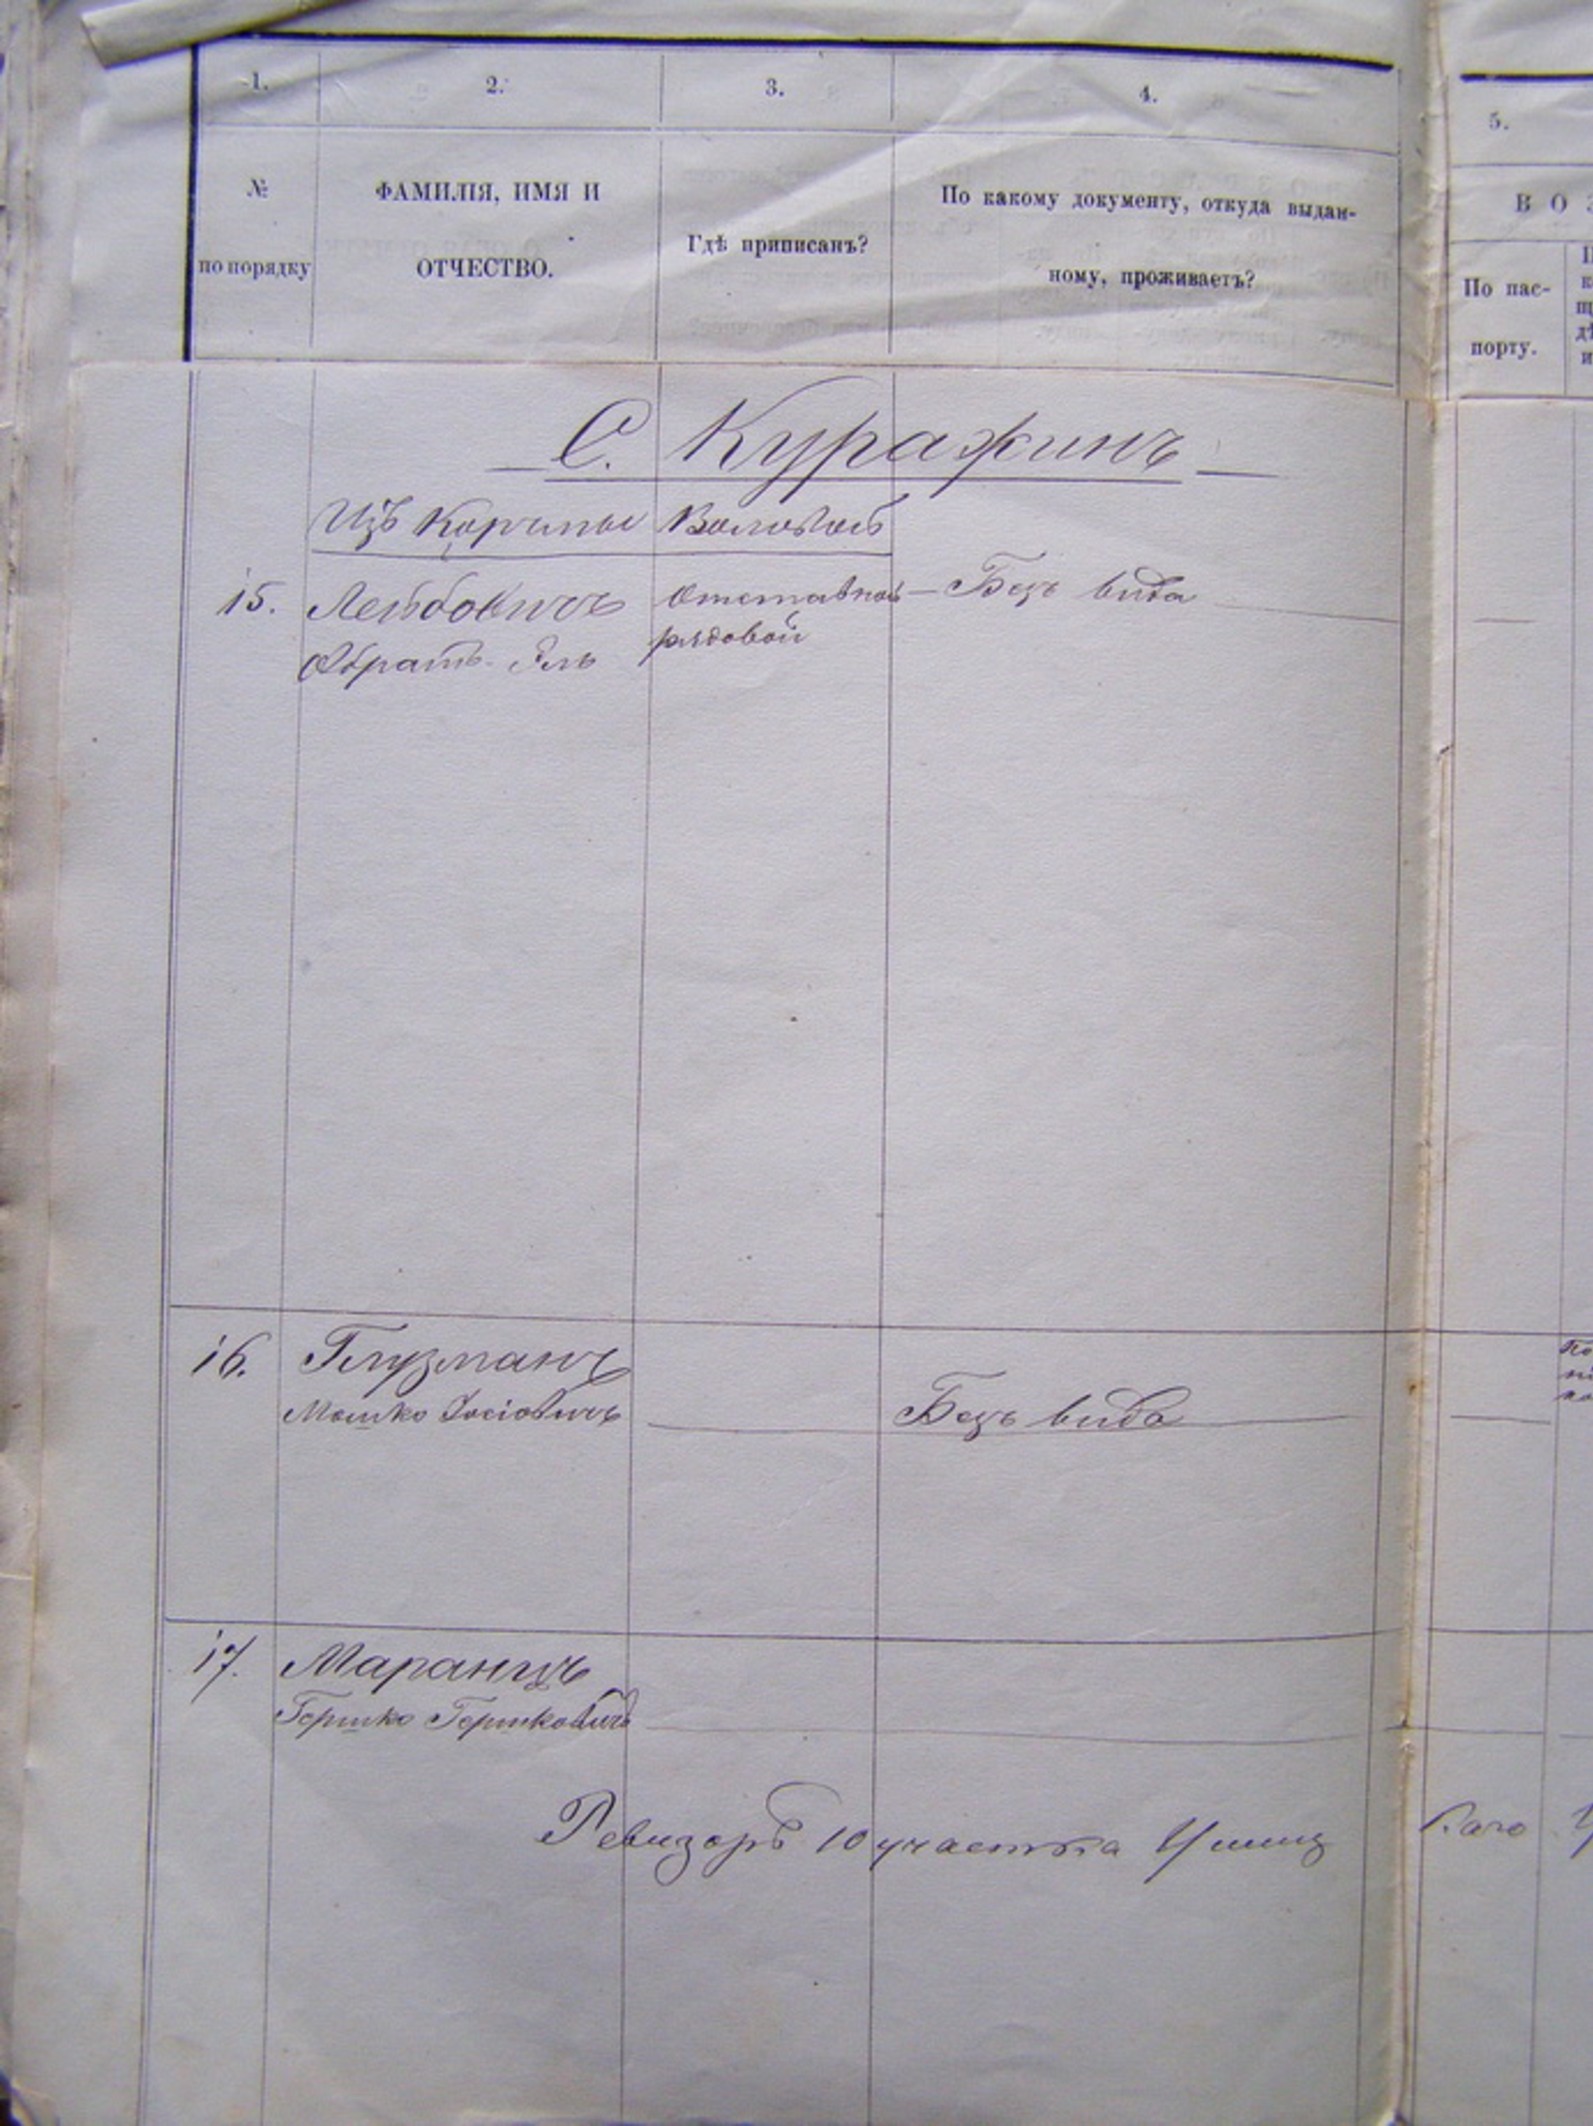 1. 2. 3. 4. 5.
№ по порядку
ФАМИЛІЯ, ИМЯ И
ОТЧЕСТВО.
Гдѣ приписанъ?
По какому документу, откуда выдан-
ному, проживаетъ?
В О З
По пас-
порту.
С. Куражинъ
Изъ Корчмы
15. Лейбовичъ Отставной — Безъ вида
рядовой
16. Глузманъ
Мошко Іосіовичъ Безъ вида
17. Маранцъ
Гершко Гершковичъ
Ревизоръ 10 участка